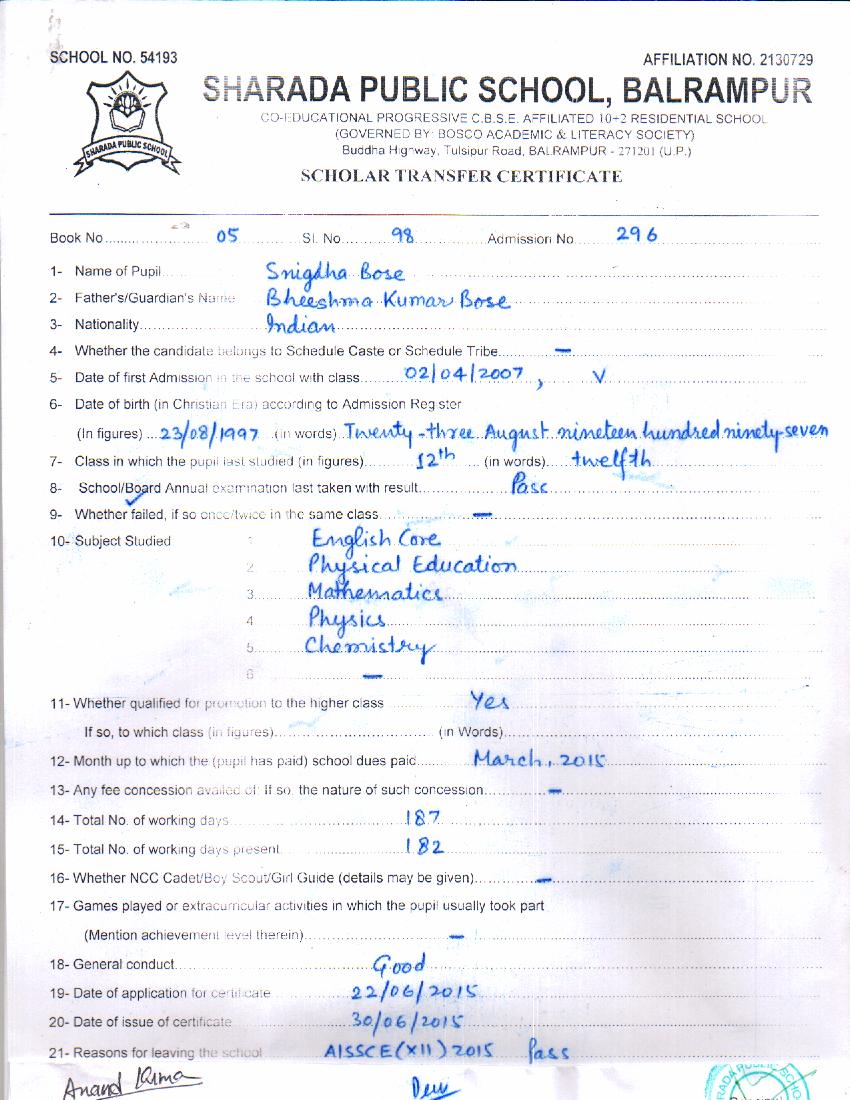 SCHOOL NO. 54193
AFFILIATION NO. 2130729
SHARADA PUBLIC SCHOOL, BALRAMPUR
CO-EDUCATIONAL PROGRESSIVE C.B.S.E. AFFILIATED 10+2 RESIDENTIAL SCHOOL
(GOVERNED BY: BOSCO ACADEMIC & LITERACY SOCIETY)
Buddha Highway, Tulsipur Road, BALRAMPUR - 271201 (U.P.)
SHARADA PUBLIC SCHOOL
SCHOLAR TRANSFER CERTIFICATE
Book No. 05 Sl. No. 98 Admission No. 296
1- Name of Pupil Snigdha Bose
2- Father's/Guardian's Name Bheeshma Kumar Bose
3- Nationality Indian
4- Whether the candidate belongs to Schedule Caste or Schedule Tribe —
5- Date of first Admission in the school with class 02/04/2007, V
6- Date of birth (in Christian Era) according to Admission Register
(In figures) 23/08/1997 (in words) Twenty-three August nineteen hundred ninety-seven
7- Class in which the pupil last studied (in figures) 12th (in words) twelfth
8- School/Board Annual examination last taken with result Pass
9- Whether failed, if so once/twice in the same class —
10- Subject Studied 1 English Core
2 Physical Education
3 Mathematics
4 Physics
5 Chemistry
6 —
11- Whether qualified for promotion to the higher class Yes
If so, to which class (in figures) (in Words)
12- Month up to which the (pupil has paid) school dues paid March, 2015
13- Any fee concession availed of: If so, the nature of such concession —
14- Total No. of working days 187
15- Total No. of working days present 182
16- Whether NCC Cadet/Boy Scout/Girl Guide (details may be given) —
17- Games played or extracurricular activities in which the pupil usually took part
(Mention achievement level therein) —
18- General conduct Good
19- Date of application for certificate 22/06/2015
20- Date of issue of certificate 30/06/2015
21- Reasons for leaving the school AISSCE(XII) 2015 Pass
Anand